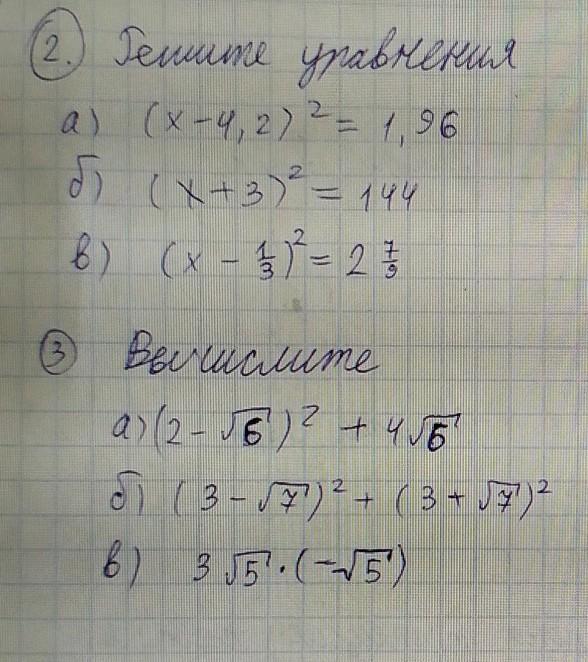 2. Решите уравнения
а) (x-4,2)² = 1,96
б) (x+3)² = 144
в) (x - 1/3)² = 2 7/9
3 Вычислите
а) (2-√6)² + 4√6
б) (3-√7)² + (3+√7)²
в) 3√5·(-√5)